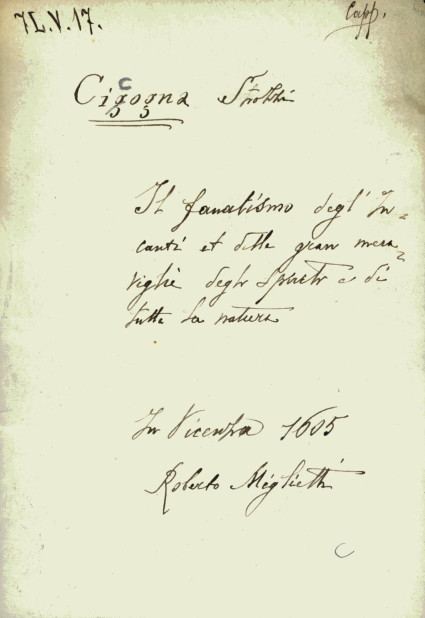 7L.V.17.
Capp.
Cigogna Strozzi
Il fanatismo degl' In-
canti et delle gran mera-
viglie degli Spiriti e di
tutta la natura
In Vicenza 1605
Roberto Miglietti